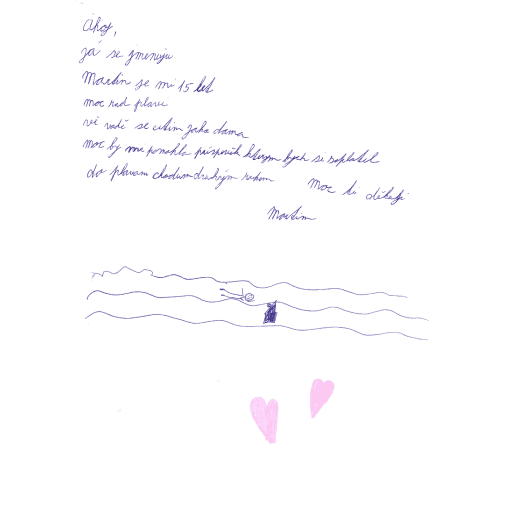 Ahoj,
já se jmenuju
Martin je mi 15 let
moc rad plavu
ve vodě se citim jako doma
moc by mě pomohla příspěvek kterym bych si zaplatil
do plavani chodim druhým rokem
Moc ti děkuji
Martin